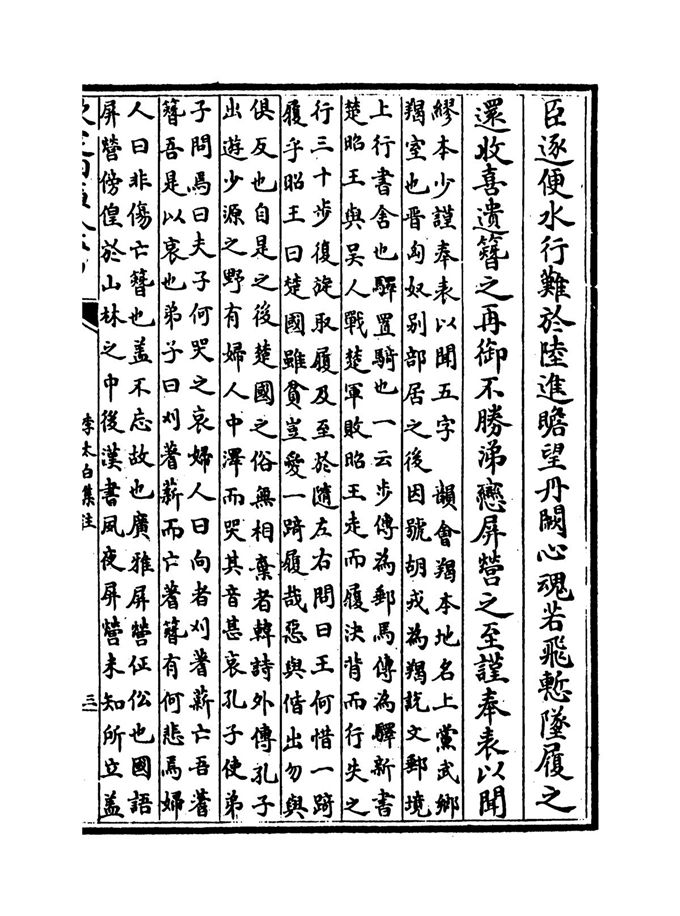 臣逐便水行難於陸進瞻望丹闕心魂若飛慙墜履之
還收喜遺簪之再御不勝涕戀屏營之至謹奉表以聞
繆本少謹奉表以聞五字　韻會羯本地名上黨武鄉
羯室也晋匈奴别部居之後因號胡戎為羯說文郵境
上行書舍也驛置騎也一云步傳為郵馬傳為驛新書
楚昭王與吳人戰楚軍敗昭王走而履決背而行失之
行三十步復旋取履及至於隨左右問曰王何惜一踦
履乎昭王曰楚國雖貧豈愛一踦履哉惡與偕出勿與
俱反也自是之後楚國之俗無相棄者韓詩外傳孔子
出遊少源之野有婦人中澤而哭其音甚哀孔子使弟
子問焉曰夫子何哭之哀婦人曰向者刈蓍薪亡吾蓍
簪吾是以哀也弟子曰刈蓍薪而亡蓍簪有何悲焉婦
人曰非傷亡簪也盖不忘故也廣雅屏營佂伀也國語
屏營傍偟於山林之中後漢書夙夜屏營未知所立盖
李太白集注
三